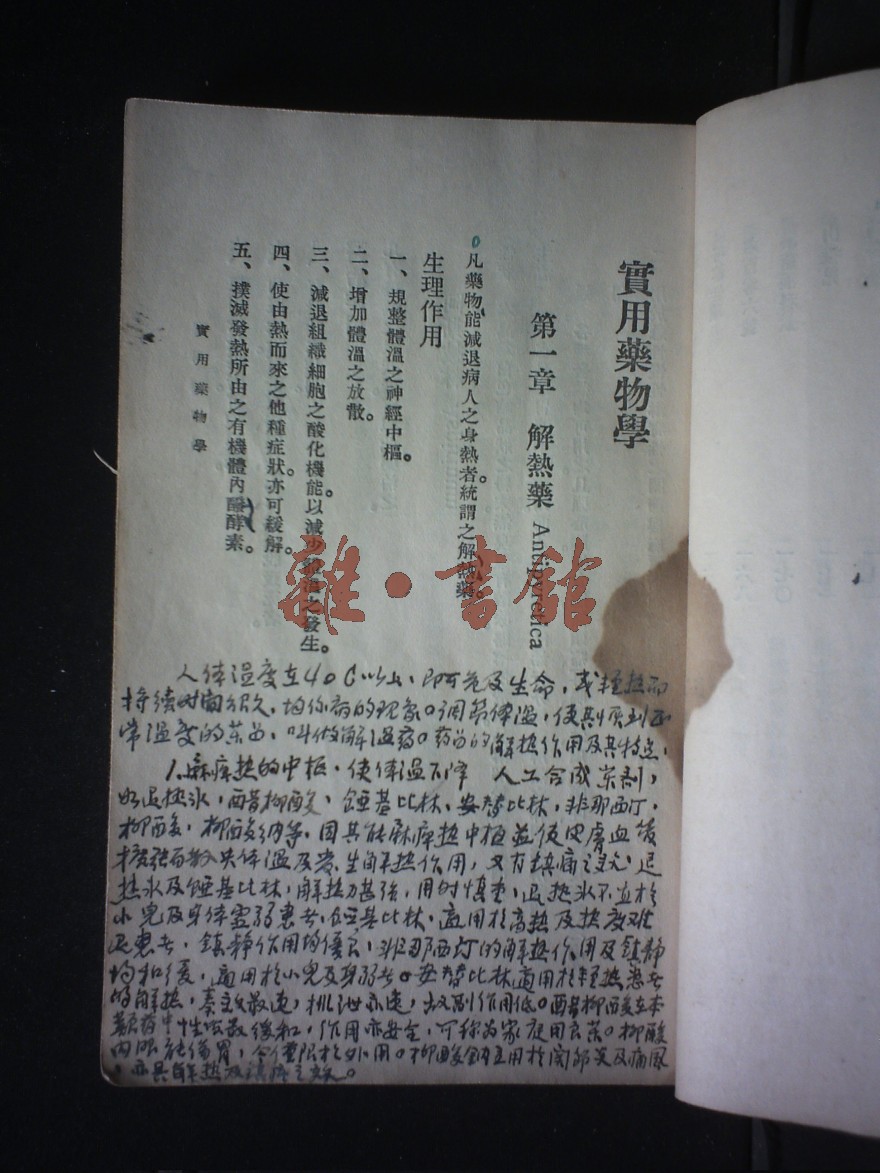 實用藥物學
第一章 解熱藥 Antipyretica
凡藥物能減退病人之身熱者。統謂之解熱藥。
生理作用
一、規整體溫之神經中樞。
二、增加體溫之放散。
三、減退組織細胞之酸化機能。以減少體溫之發生。
四、使由熱而來之他種症狀。亦可緩解。
五、撲滅發熱所由之有機體內醱酵素。
實用藥物學
雜·書館
人体温度在40C以上，即可危及生命，或轻热而
持续时间很久，均係病的现象。调节体温，使其恢到正
常温度的东西，叫做解温药。药品的解热作用及其特点，
1.麻痺热的中枢，使体温下降 人工合成茶剂，
如退热氷，醋柳酸，匹基比林，安替比林，非那西汀，
柳酸，柳酸钠等，因其能麻痺热中枢並使皮膚血管
擴張而散失体温及发生解热作用，又有镇痛之效，退
热氷及匹基比林，解热力甚强，用时慎重，退热氷不宜於
小兒及身体虚弱患者，匹基比林，适用於高热及热度难
退患者，鎮静作用均優良，非那西汀的解热作用及鎮静
均和缓，適用於小兒及身弱者。安替比林適用於轻热患者
的解热，奏效最速，排泄亦速，故副作用低。醋柳酸在本
類药中性呅最缓和，作用亦安全，可称为家庭用良药。柳酸
内服能傷胃，今僅限於外用。柳酸鈉应用於関節炎及痛風
，亦具解热及镇痛之效。